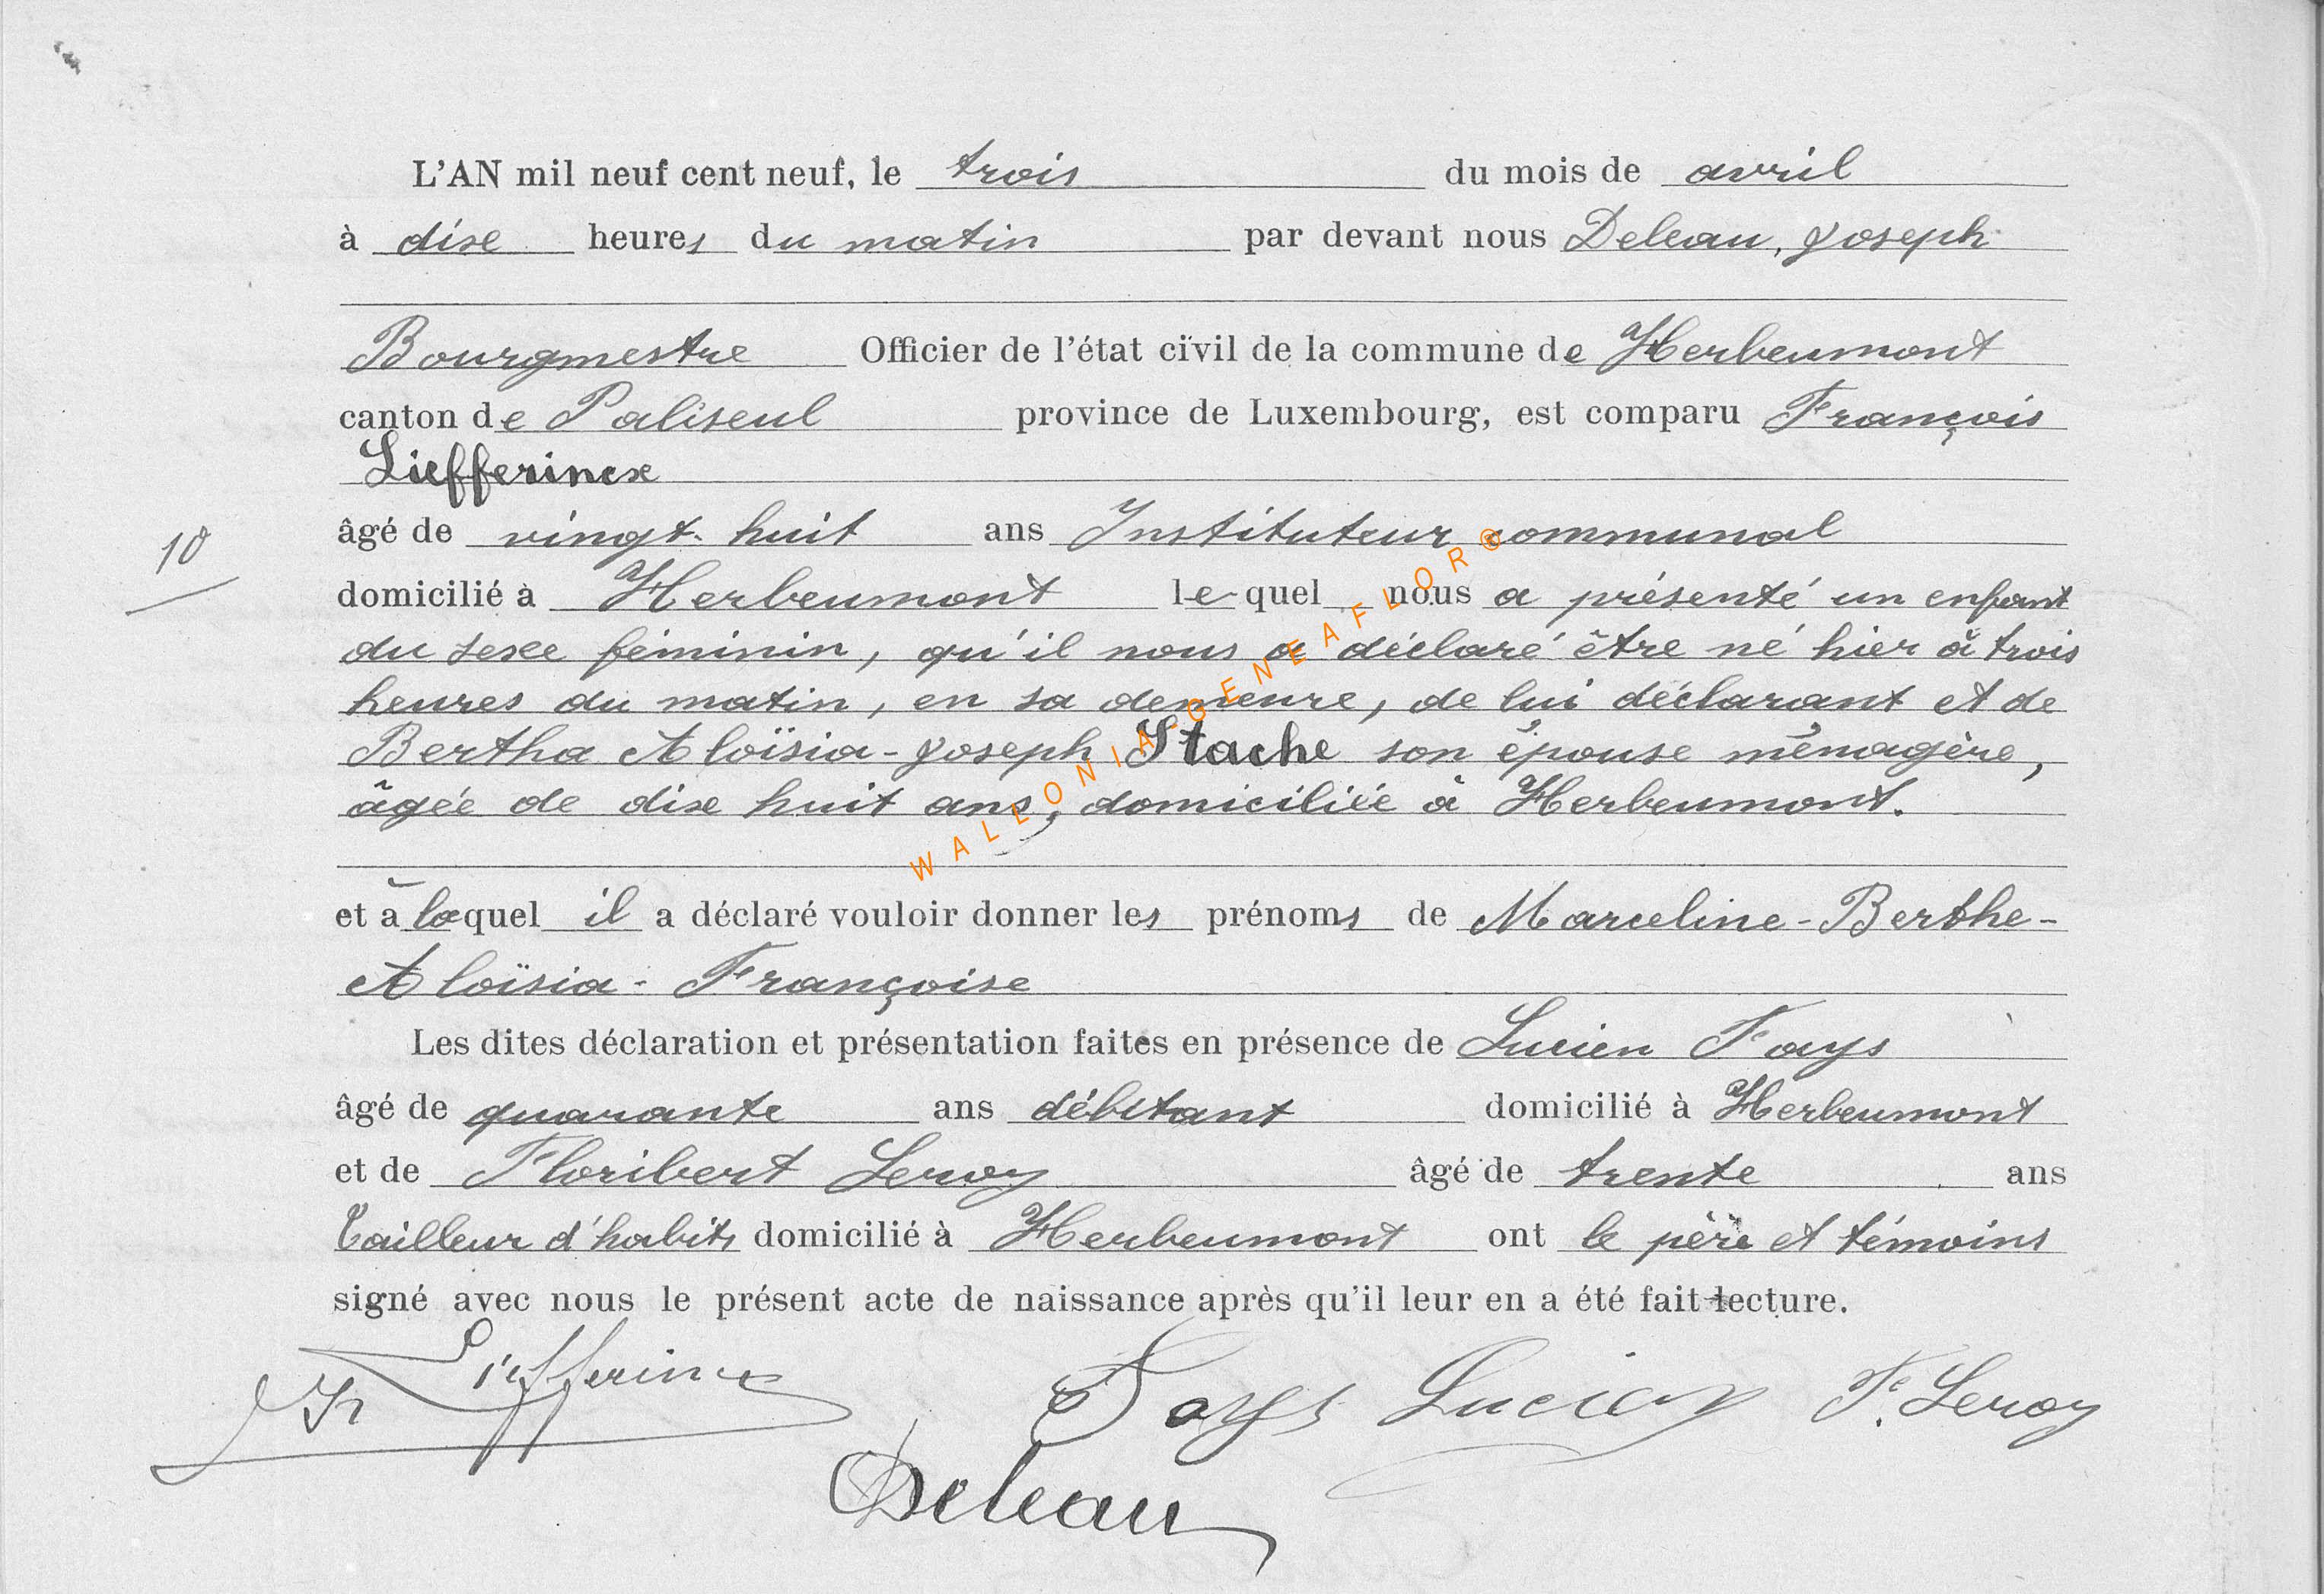 L'AN mil neuf cent neuf, le trois du mois de avril
à dixe heures du matin par devant nous Deleau, Joseph
Bourgmestre Officier de l'état civil de la commune de Herbeumont
canton de Paliseul province de Luxembourg, est comparu François
Liefferincx
âgé de vingt-huit ans Instituteur communal
10
domicilié à Herbeumont lequel nous a présenté un enfant
du sexe féminin, qu'il nous a déclaré être né hier à trois
heures du matin, en sa demeure, de lui déclarant et de
Bertha Aloïsia-Joseph Stache son épouse ménagère,
âgée de dix huit ans, domiciliée à Herbeumont.
WALLONIA-GENEAFLOR®
et à laquel il a déclaré vouloir donner les prénoms de Marceline-Berthe-
Aloïsia-Françoise
Les dites déclaration et présentation faites en présence de Lucien Fays
âgé de quarante ans débitant domicilié à Herbeumont
et de Floribert Leroy âgé de trente ans
tailleur d'habits domicilié à Herbeumont ont le père et témoins
signé avec nous le présent acte de naissance après qu'il leur en a été fait lecture.
Fr Liefferincx Fays Lucien F. Leroy
Deleau